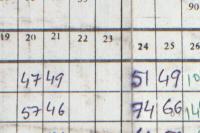 90
19 20 21 22 23 24 25 26
47 49 51 49 10
57 46 74 66 14